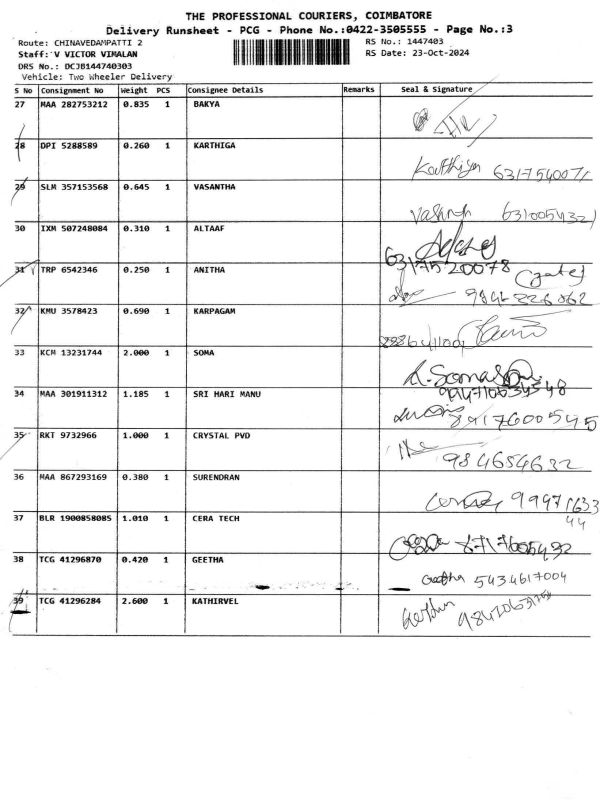 THE PROFESSIONAL COURIERS, COIMBATORE
Delivery Runsheet - PCG - Phone No.:0422-3505555 - Page No.:3
Route: CHINAVEDAMPATTI 2
RS No.: 1447403
Staff: V VICTOR VIMALAN
RS Date: 23-Oct-2024
DRS No.: DCJB144740303
Vehicle: Two Wheeler Delivery
S No Consignment No Weight PCS Consignee Details Remarks Seal & Signature
27 MAA 282753212 0.835 1 BAKYA
28 DPI 5288589 0.260 1 KARTHIGA
Karthiga 631754007
29 SLM 357153568 0.645 1 VASANTHA
631005432
30 IXM 507248084 0.310 1 ALTAAF
63175 20078
31 TRP 6542346 0.250 1 ANITHA
(gate)
32 KMU 3578423 0.690 1 KARPAGAM
33 KCM 13231744 2.000 1 SOMA
34 MAA 301911312 1.185 1 SRI HARI MANU
8917600545
35 RKT 9732966 1.000 1 CRYSTAL PVD
984654632
36 MAA 867293169 0.380 1 SURENDRAN
99971633
44
37 BLR 1900858085 1.010 1 CERA TECH
38 TCG 41296870 0.420 1 GEETHA
Geetha 5434617004
39 TCG 41296284 2.600 1 KATHIRVEL